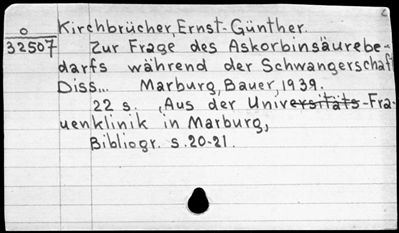 2
O Kirchbrücher, Ernst-Günther.
32507 Zur Frage des Askorbinsäurebe-
darfs während der Schwangerschaf
Diss... Marburg, Bauer, 1939.
22 s. Aus der Universitäts-Fra-
uenklinik in Marburg,
Bibliogr. s. 20-21.